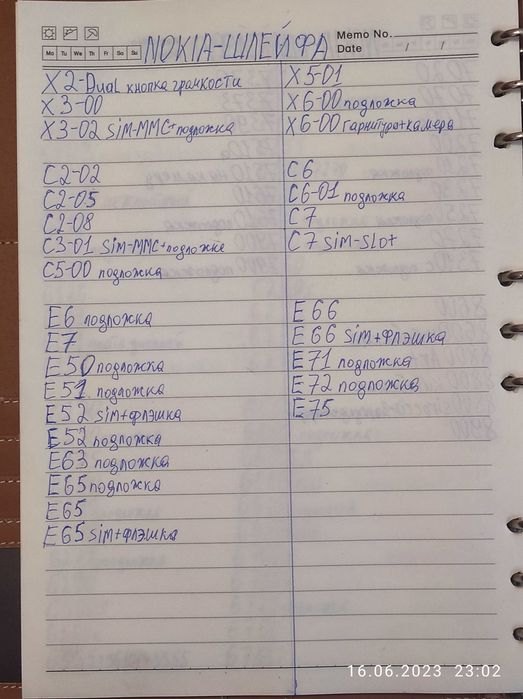 Memo No.
Mo Tu We Th Fr Sa Su
Date / /
NOKIA-ШЛЕЙФА
X2-Dual кнопка грамкости
X3-00
X3-02 Sim-MMC+подложка
C2-02
C2-05
C2-08
C3-01 Sim-MMC+подложке
C5-00 подложка
E6 подложка
E7
E50 подложка
E51 подложка
E52 sim+флэшка
E52 подложка
E63 подложка
E65 подложка
E65
E65 sim+флэшка
X5-01
X6-00 подложка
X6-00 гарнитура+камера
C6
C6-01 подложка
C7
C7 Sim-Slot
E66
E66 sim+флэшка
E71 подложка
E72 подложка
E75
16.06.2023 23:02